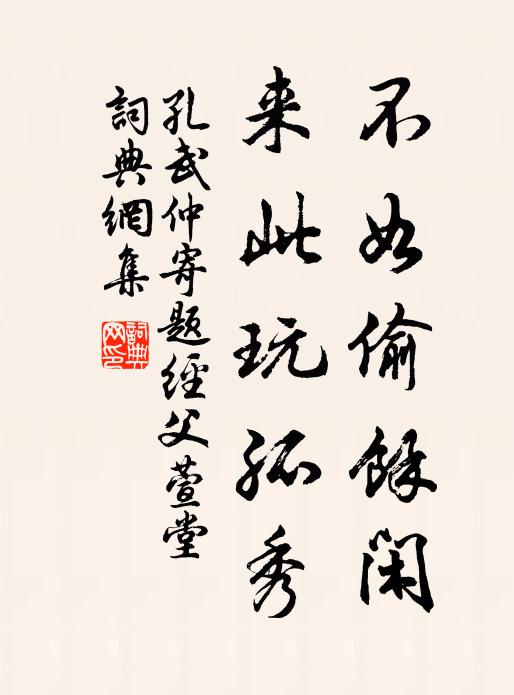 不如偷餘閑
来此玩孤秀
孔武仲寄題經父萱堂
詞典網集
詞典网印